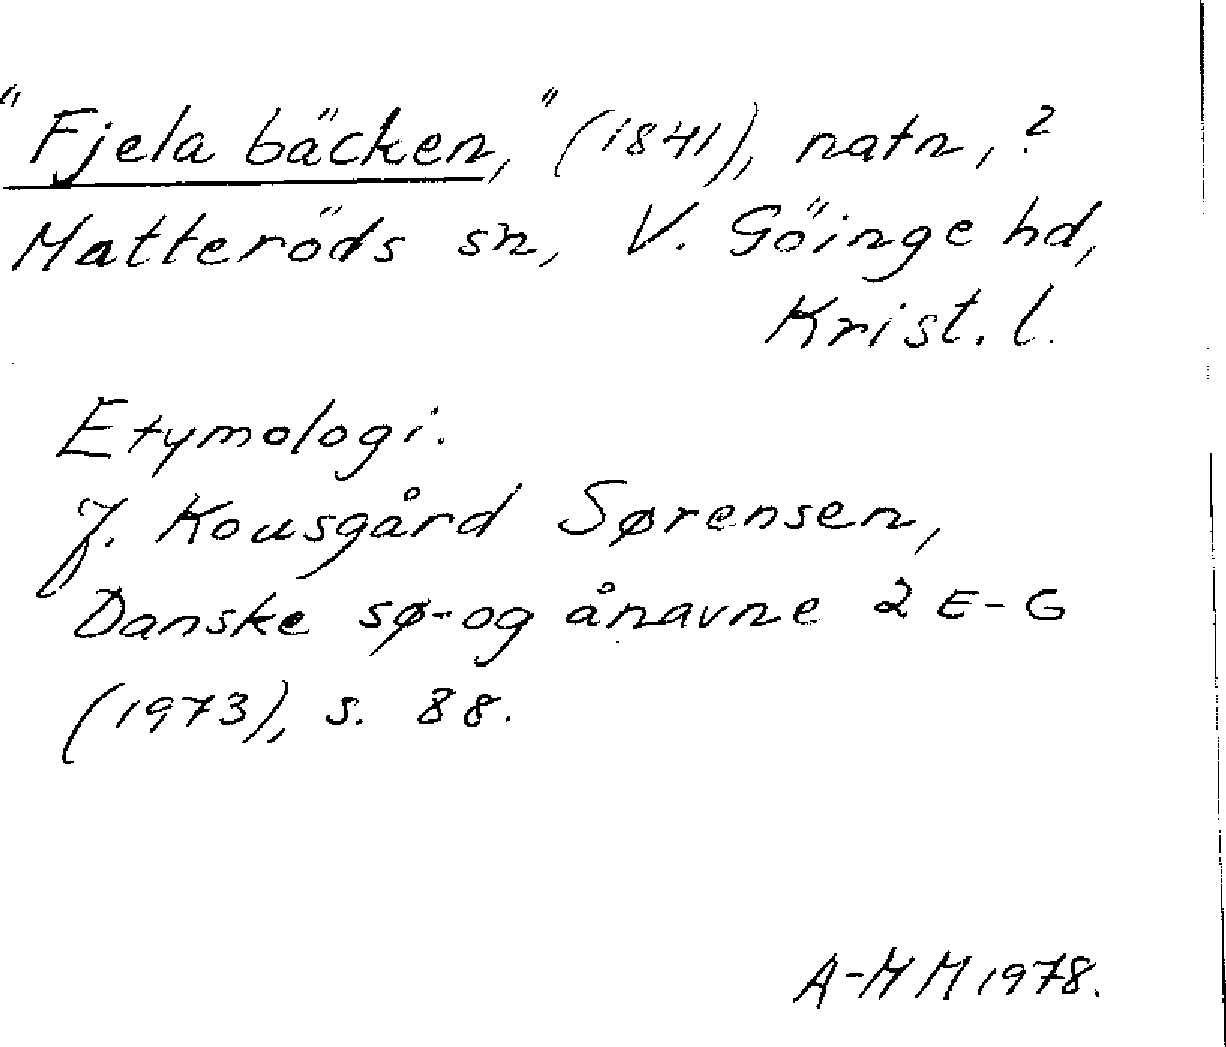 "Fjela bäcken," (1841), natn, ?
Matteröds sn, V. Göinge hd,
Krist. l.
Etymologi.
J. Kousgård Sørensen,
Danske sø- og ånavne 2 E-G
(1973), s. 88.
A-MM 1978.